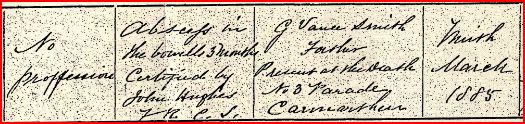 No
proffession
Abscess in
the bowells 3 months
Certified by
John Hughes
F. R. C. S.
G Vance Smith
Father
Present at the Death
No 3 Parade
Carmarthen
Ninth
March
1885